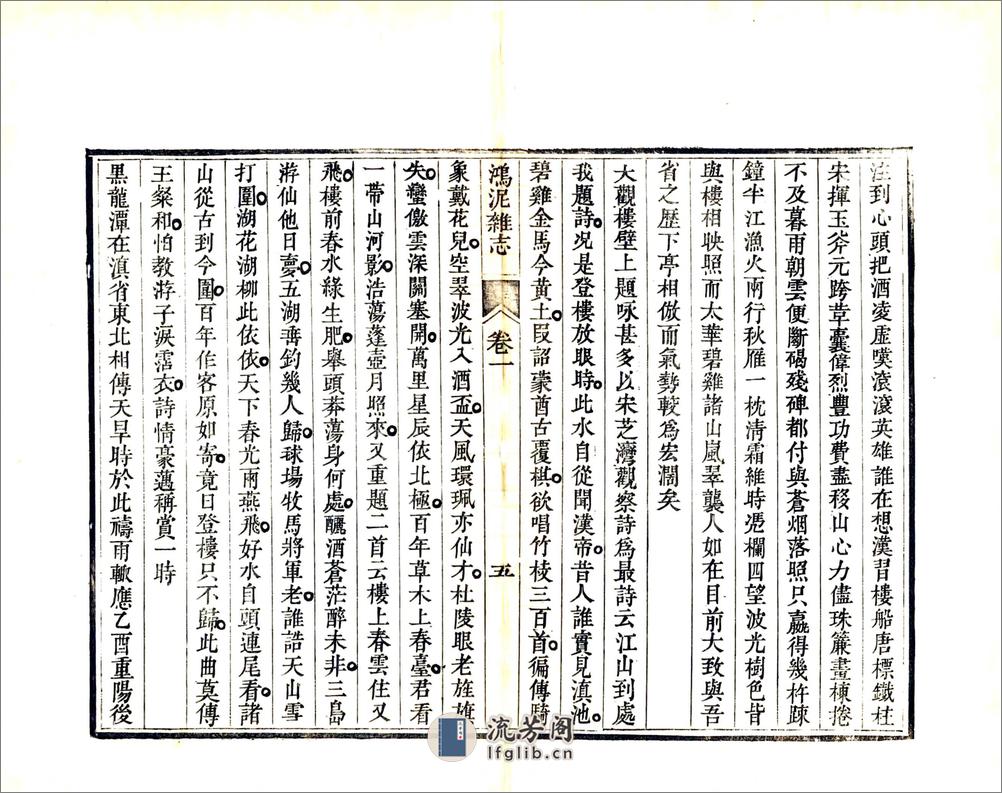 注到心頭把酒凌虛嘆滾滾英雄誰在想漢習樓船唐標鐵柱
宋揮玉斧元跨革囊偉烈豐功費盡移山心力儘珠簾畫棟捲
不及暮雨朝雲便斷碣殘碑都付與蒼烟落照只贏得幾杵疎
鐘半江漁火兩行秋雁一枕清霜維時憑欄四望波光樹色皆
與樓相映照而太華碧雞諸山嵐翠襲人如在目前大致與吾
省之歷下亭相倣而氣勢較爲宏濶矣
大觀樓壁上題咏甚多以宋芝灣觀察詩爲最詩云江山到處
我題詩況是登樓放眼時此水自從聞漢帝昔人誰實見滇池
碧雞金馬今黃土段詔蒙酋古覆棋欲唱竹棱三百首徧傳騎
鴻泥雜志
卷一
五
象戴花兒空翠波光入酒盃天風環珮亦仙才杜陵眼老旌旗
失蠻儌雲深關塞開萬里星辰依北極百年草木上春臺君看
一帶山河影浩蕩蓬壺月照來又重題二首云樓上春雲住又
飛樓前春水綠生肥舉頭莽蕩身何處釃酒蒼茫醉未非三島
游仙他日夢五湖垂釣幾人歸球場牧馬將軍老誰誥天山雪
打圍湖花湖柳此依依天下春光兩燕飛好水自頭連尾看諸
山從古到今圍百年作客原如寄竟日登樓只不歸此曲莫傳
王粲和怕教游子淚霑衣詩情豪邁稱賞一時
黑龍潭在滇省東北相傳天旱時於此禱雨輙應乙酉重陽後
流芳阁
lfglib.cn